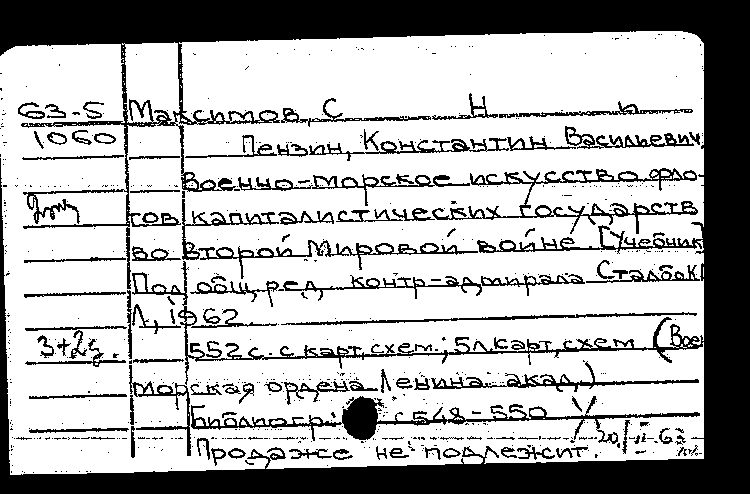 63-5 Максимов, С Н п
1060 Пензин, Константин Васильевич,
Военно-морское искусство фло-
тов капиталистических государств
во Второй Мировой войне. [Учебник]
Под общ. ред. контр-адмирала
Л., 1962.
3+2 552 с. с карт. схем.; 5 л. карт. схем (Воен
морская ордена Ленина акад.)
Библиогр.: с 548-550
Продаже не подлежит. 20/II 63